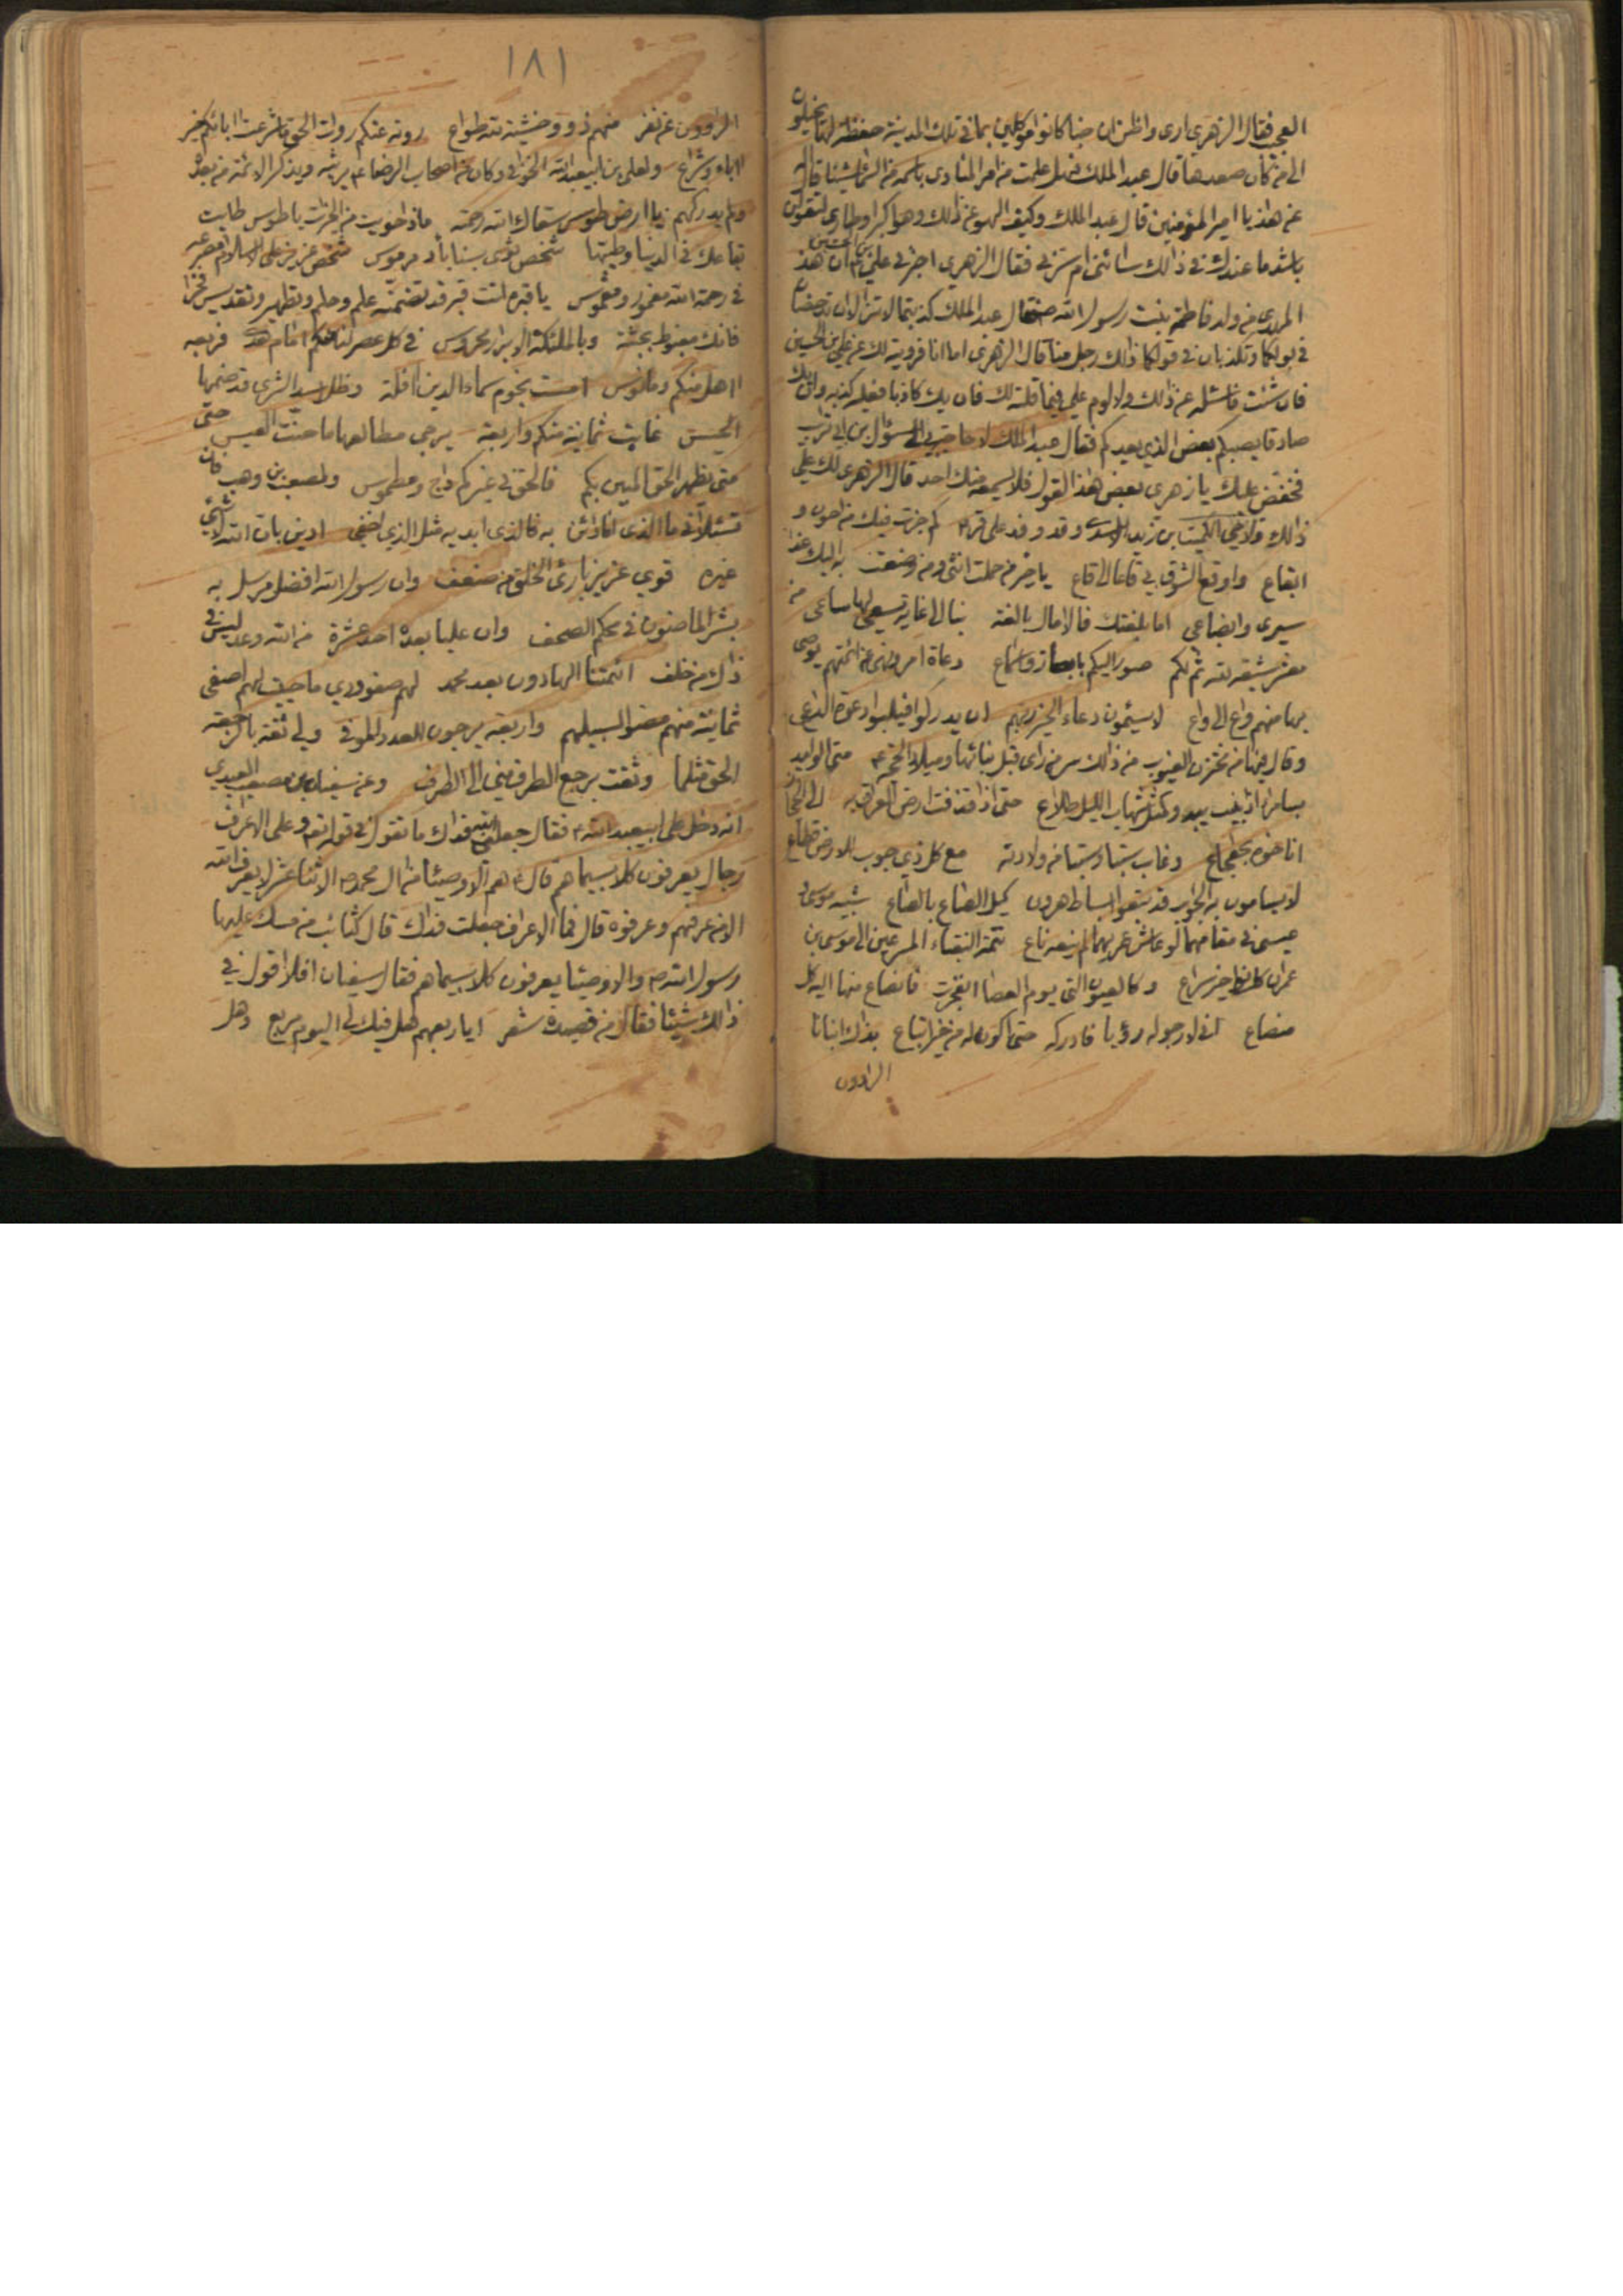 العجب فقال الزهري ارى واظن ان جنا كانوا موكلين بما في تلك المدينة حفظة لها يخيلون
الى من كان صعدها قال عبد الملك فهل علمت من امر المنادى باسمه من السماء شيئا قال
عن هذا يا امير المؤمنين قال عبد الملك وكيف الهو عن ذلك وهو اكبر اوطارى لتقولن
باشد ما عندك في ذالك سائنى ام سرني فقال الزهري اخبرني علي بن الحسين ان هذا
المهدي من ولد فاطمة بنت رسول الله ص فقال عبد الملك كذبتما لا تزالان تدحضان
في بولكما وتكذبان في قولكما ذالك رجل منا قال الزهرى اما انا فرويته لك عن علي بن الحسين
فان شئت فاسئله عن ذالك ولا لوم علي فيما قلته لك فان يك كاذبا فعليه كذبه وان يك
صادقا يصبكم بعض الذي يعدكم فقال عبد الملك لا حاجة لي الى سؤال بن ابي تراب
فخفض عليك يا زهرى بعض هذا القول فلا يسمعه منك احد قال الزهرى لك علي
ذالك الكميت بن زيد الاسدي وقد وفد على كم جزت فيك من احوز و
ايقاع واوقع الشوق بي قاعا الى قاع يا خير من حملت انثى ومن وضعت به اليك غدا
سيرى وايضاعى اما بلغتك فالامال بالغة بنا الى غاية يسعى لها ساعى من
معشر شيعة لله ثم لكم صور اليكم بابصار واسماع دعاة امر ونهى عن ائمتهم يوصى
بها منهم واع الى واع لا يسئمون دعاء الخير ربهم ان يدركوا فيلبوا دعوة الداعى
وقال من مخزن الغيوب من ذالك سر من راى قبل بنائها وميلاد الحجة ع متى الوليد
بسامرا اذ بنيت يبدو كمثل شهاب الليل طلاع حتى اذا قذفت ارض العراق به الى الحجاز
اناخوه بجعجاع وغاب سبتا وسبتا من ولادته مع كل ذي جوب للارض قطاع
لا يسامون به الجواب قد تبعوا اسباط هرون كيل الصاع بالصاع شبيه موسى و
عيسى في مغابهما لو عاش عمريهما لم ينعه ناع تتمة النقباء المسرعين الى موسى بن
عمران كانوا خير سراع وكالعيون التى يوم العصا انفجرت فانصاع منها اليه كل
منصاع انى لارجو له رؤيا فادركه حتى اكون له من خير اتباع بذاك انبانا
الراوون
١٨١
الراوون عن نفر منهم ذوو خشية لله طواع روته عنكم روات الحق ما شرعت اباؤكم خير
اباء وشراع ولعلى بن ابيعبد الله الخوافى وكان من اصحاب الرضا ع يرثيه ويذكر الائمة من بعده
ولم يدركهم يا ارض طوس سقاك الله رحمته ماذا حويت من الخيرات يا طوس طابت
بقاعك في الدنيا وطيبها شخص ثوى بسناباد مرموس شخص عزيز على الاسلام مصرعه
في رحمة الله مغمور ومغموس يا قبره انت قبر قد تضمنه علم وحلم وتطهير وتقديس فخرا
فانك مغبوط بجثته وبالملئكة الابرار محروس في كل عصر لنا منكم امام هدى فربعه
اهل منكم ومانوس امست نجوم سماء الدين افلة وظل اسد الشرى قد ضمها
الخيس غابت ثمانية منكم واربعة يرجى مطالعها ما حنت العيس حتى
متى يظهر الحق المبين بكم فالحق في غيركم داج ومطموس ولمصعب بن وهب فان
تسئلانى ما الذى انا دائن به فالذى ابديه مثل الذي اخفى ادين بان الله لا شئ
غيره قوي عزيز بارئ الخلق من ضعف وان رسول الله افضل مرسل به
بشر الماضون في محكم الصحف وان عليا بعده احد عشرة من الله وعد ليس في
ذاك من خلف ائمتنا الهادون بعد محمد لهم صفو ودي ما حييت لهم اصفى
ثمانية منهم مضوا لسبيلهم واربعة يرجون للعدد الموفى ولي ثقة بالرجعة
الحق مثلما وثقت برجع الطرف مني الى الطرف وعن سفيان بن مصعب العبدي
انه دخل على ابيعبد الله ع فقال جعلني الله فداك ما تقول في قوله تع وعلى الاعراف
رجال يعرفون كلا بسيماهم قال هم الاوصيا من ال محمد ص الاثنا عشر لا يعرف الله
الا من عرفهم وعرفوه قال فما الاعراف جعلت فداك قال كثائب من مسك عليها
رسول الله ص والاوصيا يعرفون كلا بسيماهم فقال سفيان افلا اقول في
ذالك شيئا فقال من قصيدة شعر ايا ربعهم هل فيك لى اليوم مربع وهل